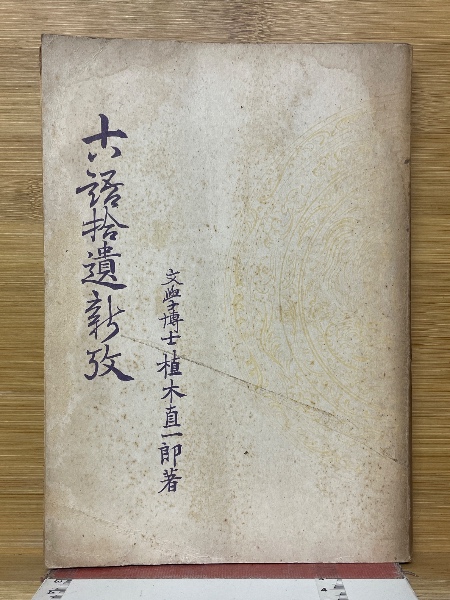 古語拾遺新攷
文学博士植木直一郎著